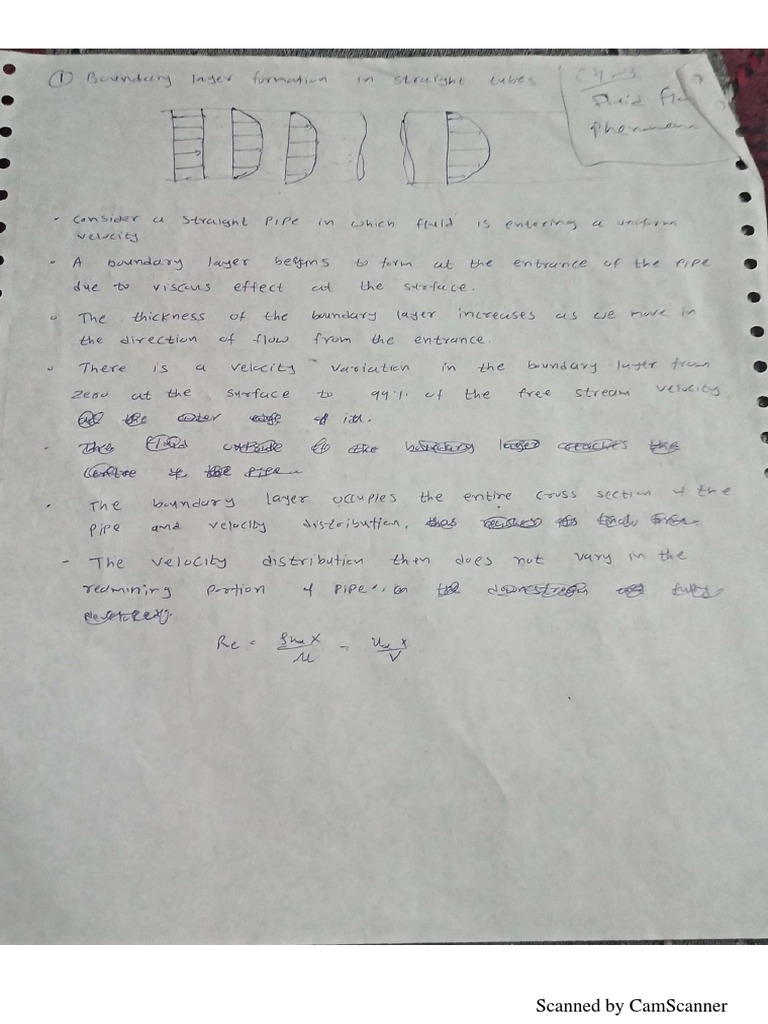 ① Boundary layer formation in straight tubes
Ch-3
Fluid fl
phenomena
- Consider a straight pipe in which fluid is entering a uniform
velocity
- A boundary layer begins to form at the entrance of the pipe
due to viscous effect at the surface.
- The thickness of the boundary layer increases as we move in
the direction of flow from the entrance.
- There is a velocity variation in the boundary layer from
zero at the surface to 99% of the free stream velocity
at the outer edge of it.
- The fluid outside the boundary layer reaches the
centre of the pipe
- The boundary layer occupies the entire cross section of the
pipe and velocity distribution,
- The velocity distribution then does not vary in the
redmining portion of pipe. in the downstream fully
developed.
Re = ρu∞x/μ = u∞x/ν
Scanned by CamScanner